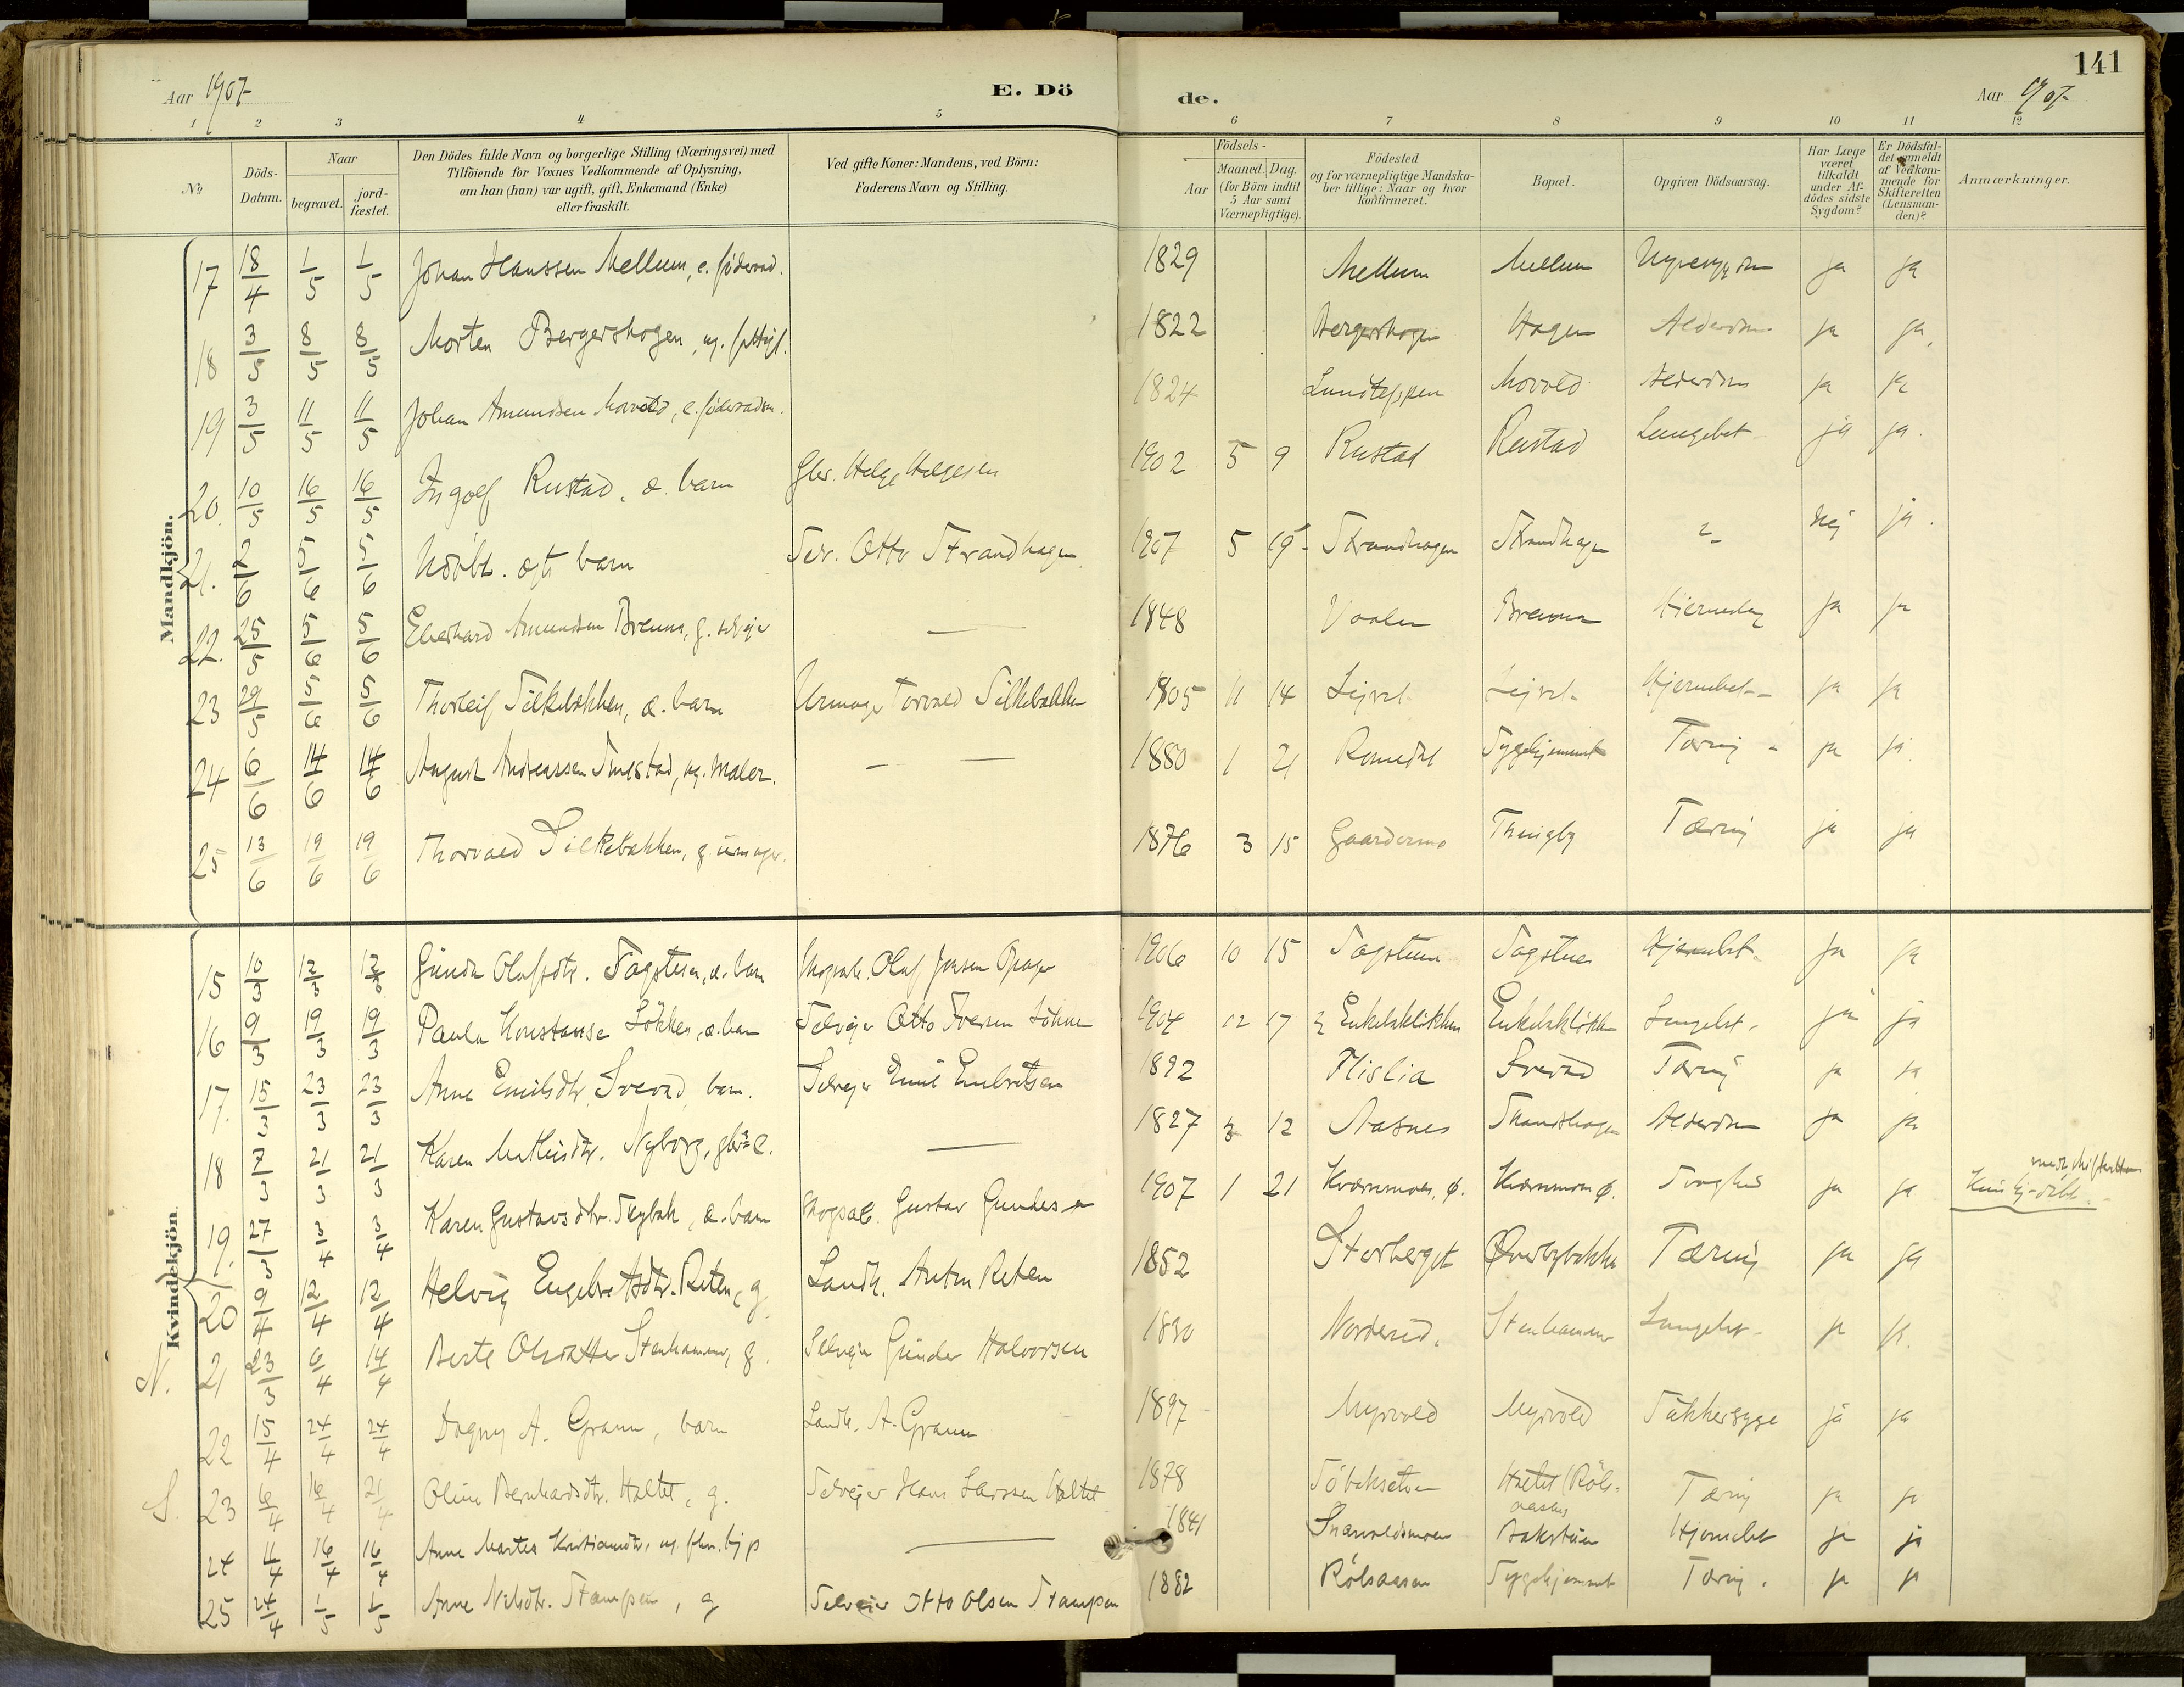 141
Aar 1907
E. Dö
de.
Aar 1907
1 2 3 4 5 6 7 8 9 10 11 12
No
Döds-Datum.
Naar
begravet.
jord-fæstet.
Den Dödes fulde Navn og borgerlige Stilling (Næringsvei) med
Tilföiende for Voxnes Vedkommende af Oplysning,
om han (hun) var ugift, gift, Enkemand (Enke)
eller fraskilt.
Ved gifte Koner: Mandens, ved Börn:
Faderens Navn og Stilling.
Födsels-
Aar
Maaned. Dag.
(for Börn indtil
5 Aar samt
Værnepligtige).
Födested
og for værnepligtige Mandska-
ber tillige: Naar og hvor
konfirmeret.
Bopæl.
Opgiven Dödsaarsag.
Har Læge
været
tilkaldt
under Af-
dödes sidste
Sygdom?
Er Dödsfal-
det anmeldt
af Vedkom-
mende for
Skifteretten
(Lensman-
den)?
Anmærkninger.
Mandkjön.
17 18/4 1/5 1/5 Johan Hanssen Mellum, e. föderaad. 1829 Mellum Mellum ja ja
18 3/5 8/5 8/5 Morten Bergershagen, ug. 1822 Bergershagen Hagen Alderdom ja ja
19 3/5 11/5 11/5 Johan Amundsen Morvold, e. föderaadm. 1824 Morvold Alderdom ja ja
20. 10/5 16/5 16/5 Ingolf Rustad, æ. barn Gbr. Helge Helgesen 1902 5 9 Rustad Rustad Lungebet ja ja.
21. 2/6 5/6 5/6 Udöbt. barn Selv. Otto Strandhagen 1907 5 19 Strandhagen Strandhagen Nej ja.
22. 25/5 5/6 5/6 Eberhard Amundsen Brenna, g. selvejer — 1848 Vaalen Brenna ja ja
23 29/5 5/6 5/6 Thorleif Silkebækken, æ. barn Urmager Torvald Silkebækken 1905 11 14 Lejret Lejret Hjernebet. ja ja
24 6/6 14/6 14/6 August Andreassen Tmestad, ug. maler. — 1880 1 21 Romedal Sygehjemmet Tæring ja ja
25 13/6 19/6 19/6 Thorvald Silkebækken, g. urmager. 1876 3 15 Gaardermo Thingby Tæring ja ja
Kvindekjön.
15 10/3 12/3 12/3 Gunda Olafsdtr. Fagstuen, æ. barn Skogsarb. Olaf Jensen 1906 10 15 Fagstuen Fagstuen ja ja
16 9/3 19/3 19/3 Paula Konstanse Lökken, æ. barn Selvejer Otto Iversen 1904 12 17 Lungebet. ja ja
17. 15/3 23/3 23/3 Anne Emilsdtr. Sverad, barn. Selvejer Emil Embretsen 1892 Flislia Sverad Tæring ja ja
18 7/3 21/3 21/3 Karen Mathisdtr. Nyborg, e. — 1827 3 12 Aasnes Strandhagen Alderdom ja ja
19. 27/3 3/4 3/4 Karen Gustavsdtr. æ. barn Skogsarb. Gustav Gundersen 1907 1 21 Kværnmoen, ø. Kværnmoen ø. ja ja
20 9/4 12/4 12/4 Helvig Engebretsdtr. Reten, g. Landh. Anton Reten 1852 Storberget Øverbybækken Tæring ja ja
N. 21 23/3 6/4 14/4 Berte Olsdatter Stenhammer, g. Selvejer Gunder Halvorsen 1830 Norderud. Stenhammer Lungebet. ja ja.
22 15/4 24/4 24/4 Dagny A. Gramm, barn Landh. A. Gramm 1897 Myrvold Myrvold Sukkersyge ja ja
S. 23 6/4 16/4 21/4 Oline Bernhardsdtr. Haltet, g. Selvejer Hans Larssen Haltet 1878 Haltet (Röls-
aasen) Tæring ja ja
24 4/4 16/4 16/4 Anne Martea Kristiansdtr. ug. — 1841 Bakstuen ja ja
25 24/4 1/5 1/5 Anne Nilsdtr. Stampen, g Selveier Otto Olsen Stampen 1882 Rölsaasen Sygehjemmet Tæring. ja ja